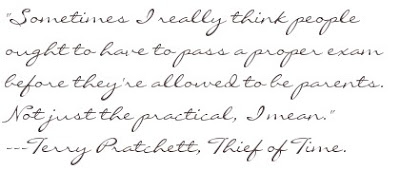 "Sometimes I really think people
ought to have to pass a proper exam
before they're allowed to be parents.
Not just the practical, I mean."
---Terry Pratchett, Thief of Time.